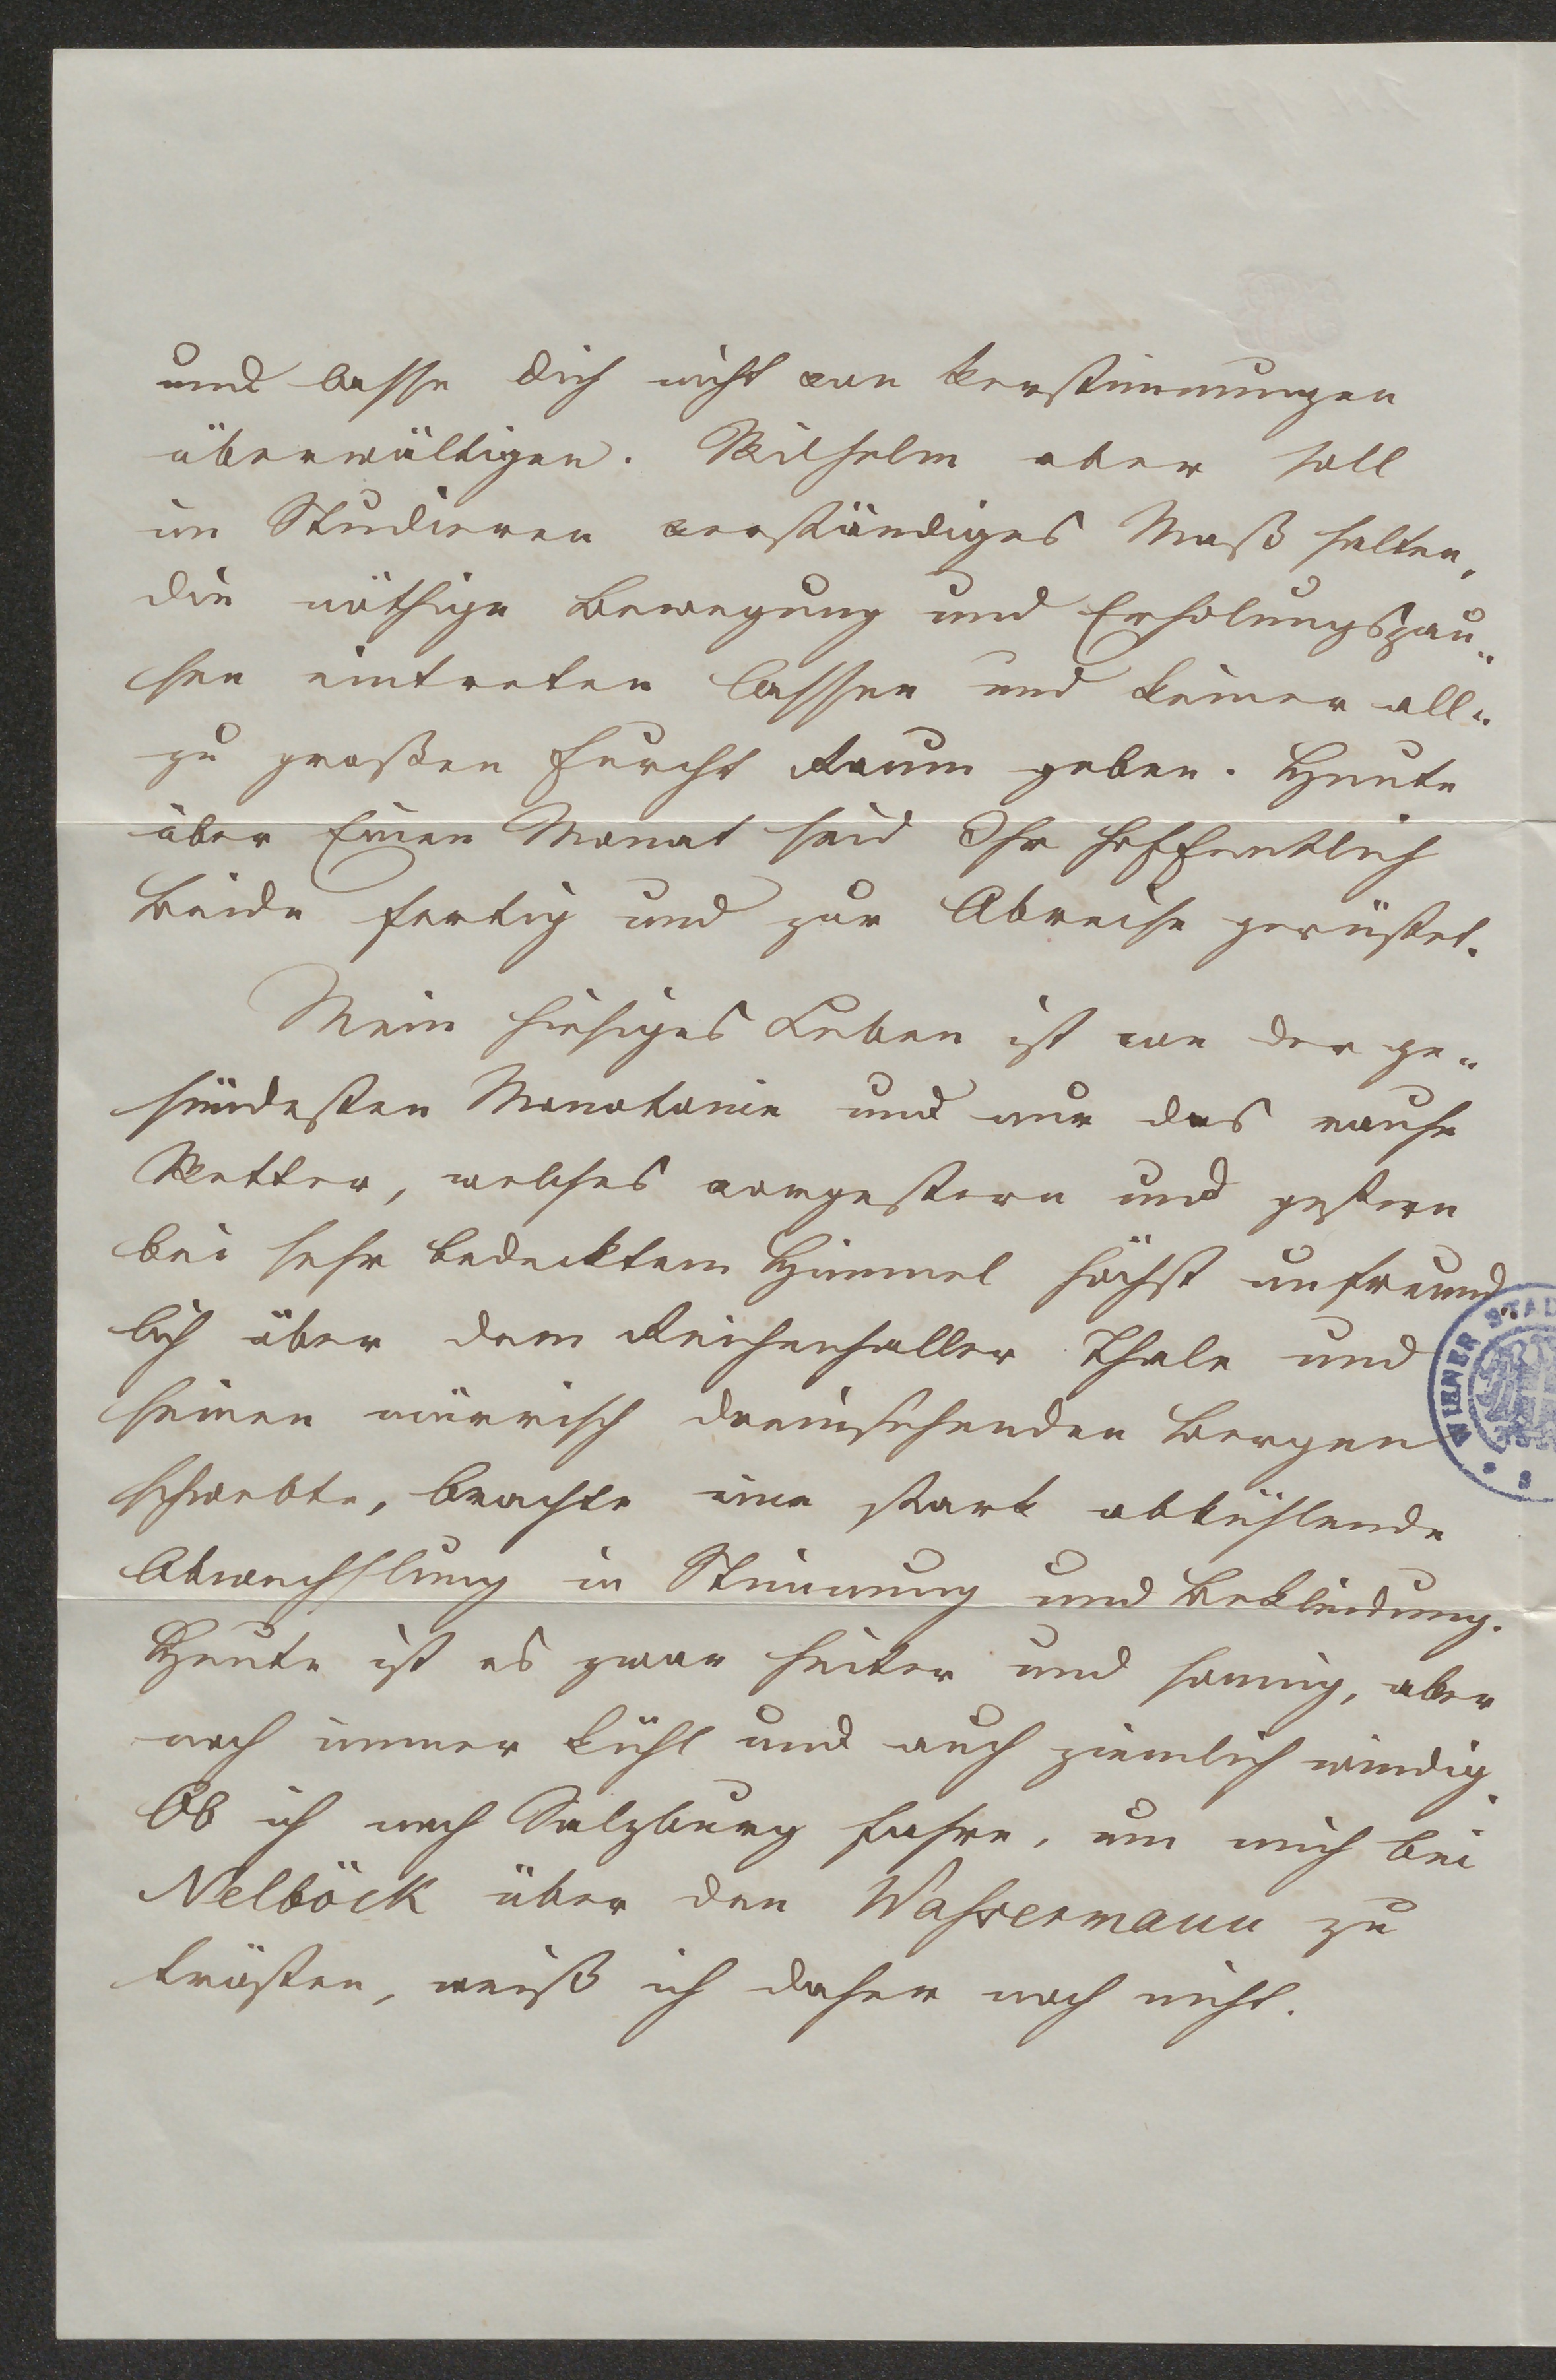 und lasse Dich nicht von Verstimmungen
überwältigen. Wilhelm aber soll
im Studieren verständiges Maß halten,
die nöthige Bewegung und Erholungspau-
sen eintreten lassen und keiner all-
zu großen Furcht Raum geben. Heute
über Einen Monat seid Ihr hoffentlich
beide fertig und zur Abreise gerüstet.
Mein hiesiges Leben ist von der ge-
sündesten Monotonie und nur das rauhe
Wetter, welches vorgestern und gestern
bei sehr bedecktem Himmel höchst unfreund-
lich über dem Reichenhaller Thale und
seinen mürrisch dreinsehenden Bergen
schwebte, brachte eine stark abkühlende
Abwechslung in Stimmung und Bekleidung.
Heute ist es zwar heiter und sonnig, aber
noch immer kühl und auch ziemlich windig.
Ob ich nach Salzburg fahre, um mich bei
Nelböck über den Wassermann zu
trösten, weiß ich daher noch nicht.
WIENER STAD